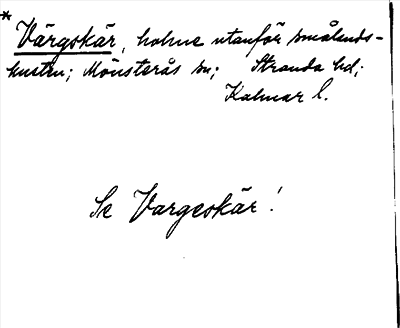 * Värgskär, holme utanför smålands-
kusten; Mönsterås sn; Stranda hd;
Kalmar l.
Se Vargeskär!